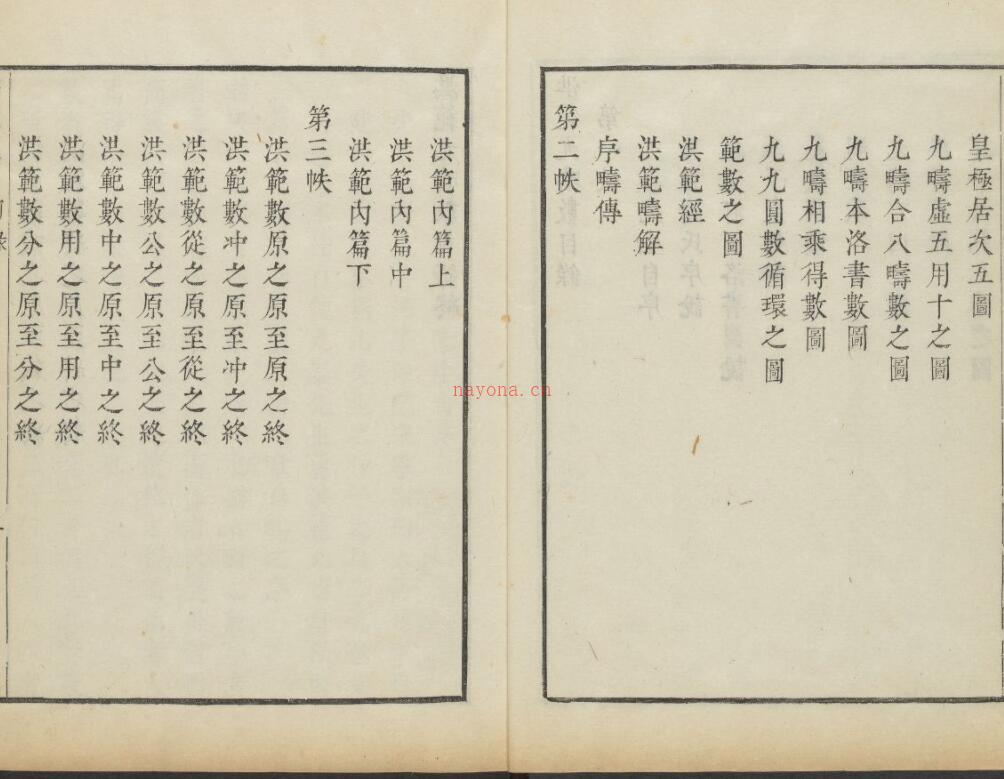 皇極居次五圖
九疇虛五用十之圖
九疇合八疇數之圖
九疇本洛書數圖
九疇相乘得數圖
九九圓數循環之圖
範數之圖
洪範經
洪範疇解
序疇傳
第二帙
洪範內篇上
洪範內篇中
洪範內篇下
第三帙
洪範數原之原至原之終
洪範數冲之原至冲之終
洪範數從之原至從之終
洪範數公之原至公之終
洪範數中之原至中之終
洪範數用之原至用之終
洪範數分之原至分之終
nayona.cn